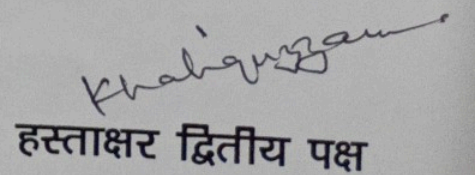 Khaliquzzam
हस्ताक्षर द्वितीय पक्ष